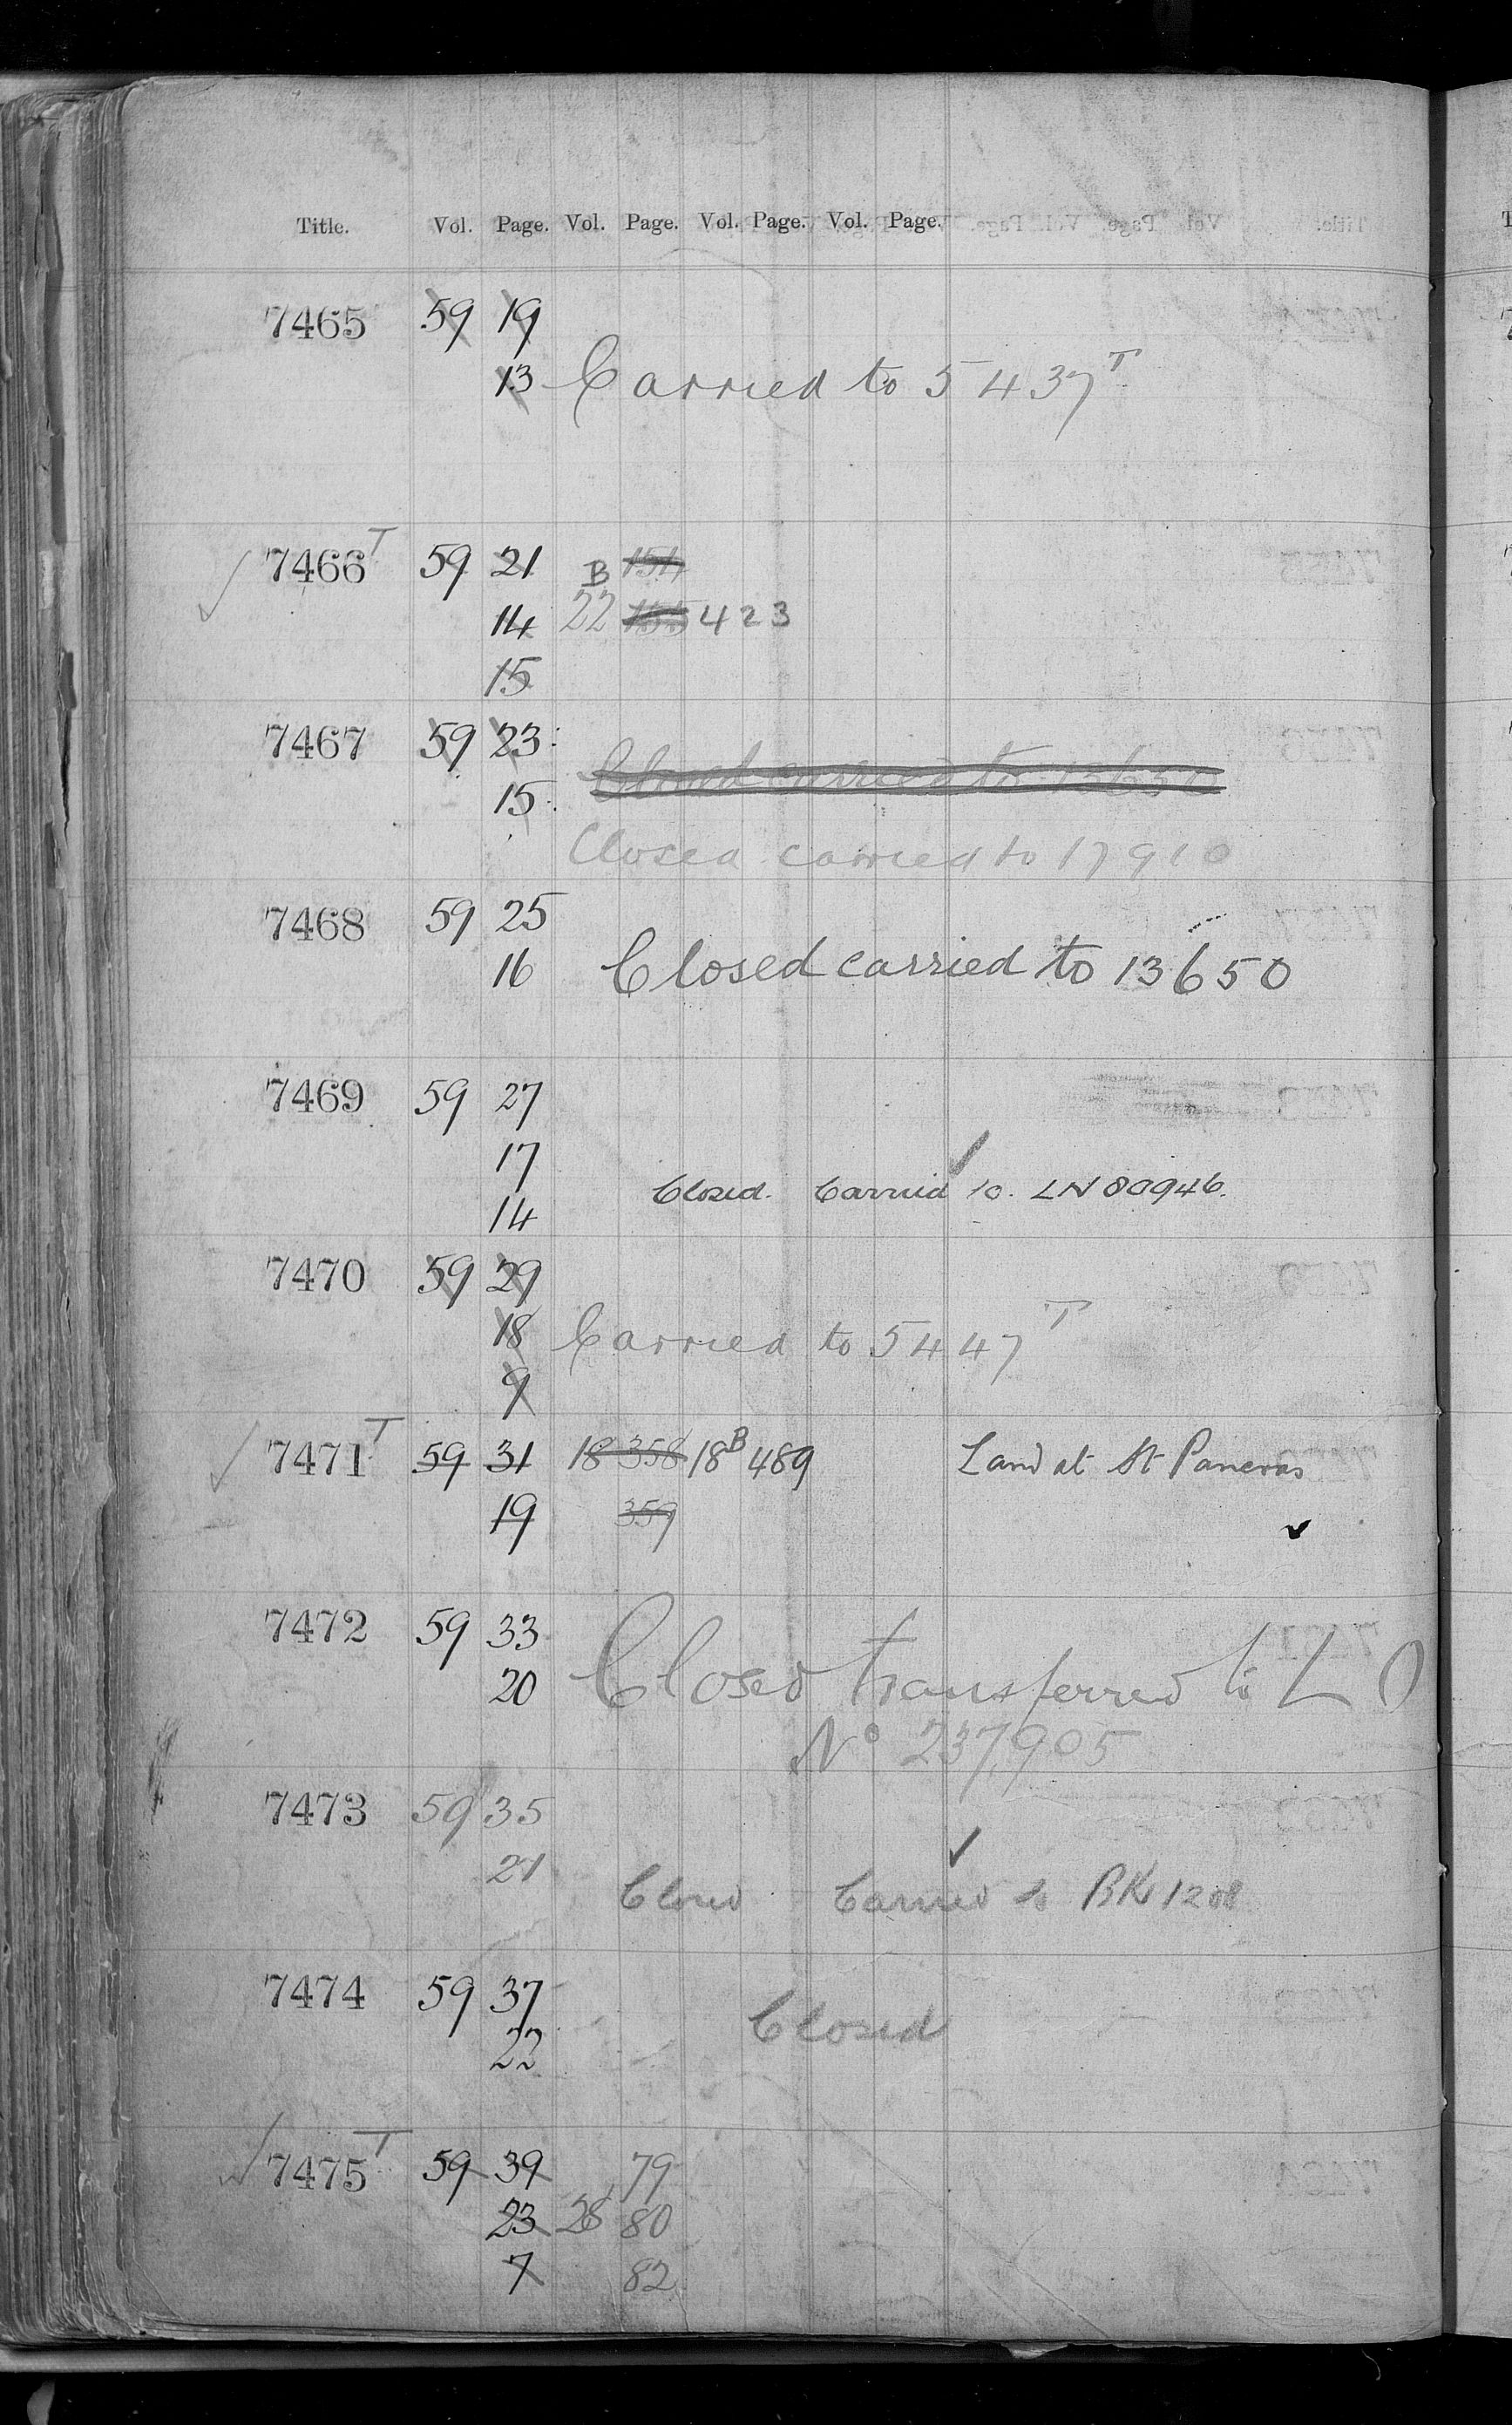 Title. Vol. Page. Vol. Page. Vol. Page. Vol. Page.
7465 59 19
13 Carried to 5437 T
7466 T 59 21 B 154
14 22 155 423
15
7467 59 23
15 Closed carried to 13650
Closed carried to 17910
7468 59 25
16 Closed carried to 13650
7469 59 27
17
Closed. Carried to. LN 80946.
14
7470 59 29
18 Carried to 5447 T
9
7471 T 59 31 18 358 18 B 489 Land at St Pancras
19 359
7472 59 33
20 Closed transferred to L O
No 237905
7473 59 35
21
Closed Carried to BK 1208
7474 59 37
Closed
22
7475 T 59 39 79
23 28 80
7 82